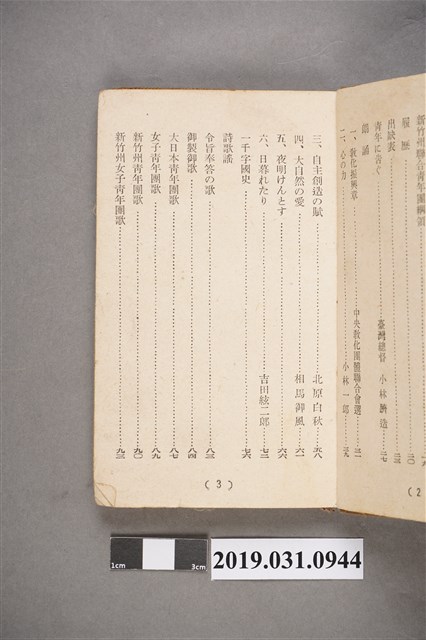 新竹州聯合青年團綱領
履歷
出缺表
青年に告ぐ 臺灣總督 小林躋造
朗誦
一、教化振興章 中央教化團體聯合會選
二、心の力 小林一郎
(2
三、自主創造の賦 北原白秋 五八
四、大自然の愛 相馬御風 六一
五、夜明けんとす 六六
六、日暮れたり 吉田絃二郎 七三
一千字國史 七六
詩歌謠
令旨奉答の歌 八三
御製御歌 八四
大日本青年團歌 八七
女子青年團歌 八九
新竹州青年團歌 九〇
新竹州女子青年團歌 九三
(3)
1cm 3cm
2019.031.0944